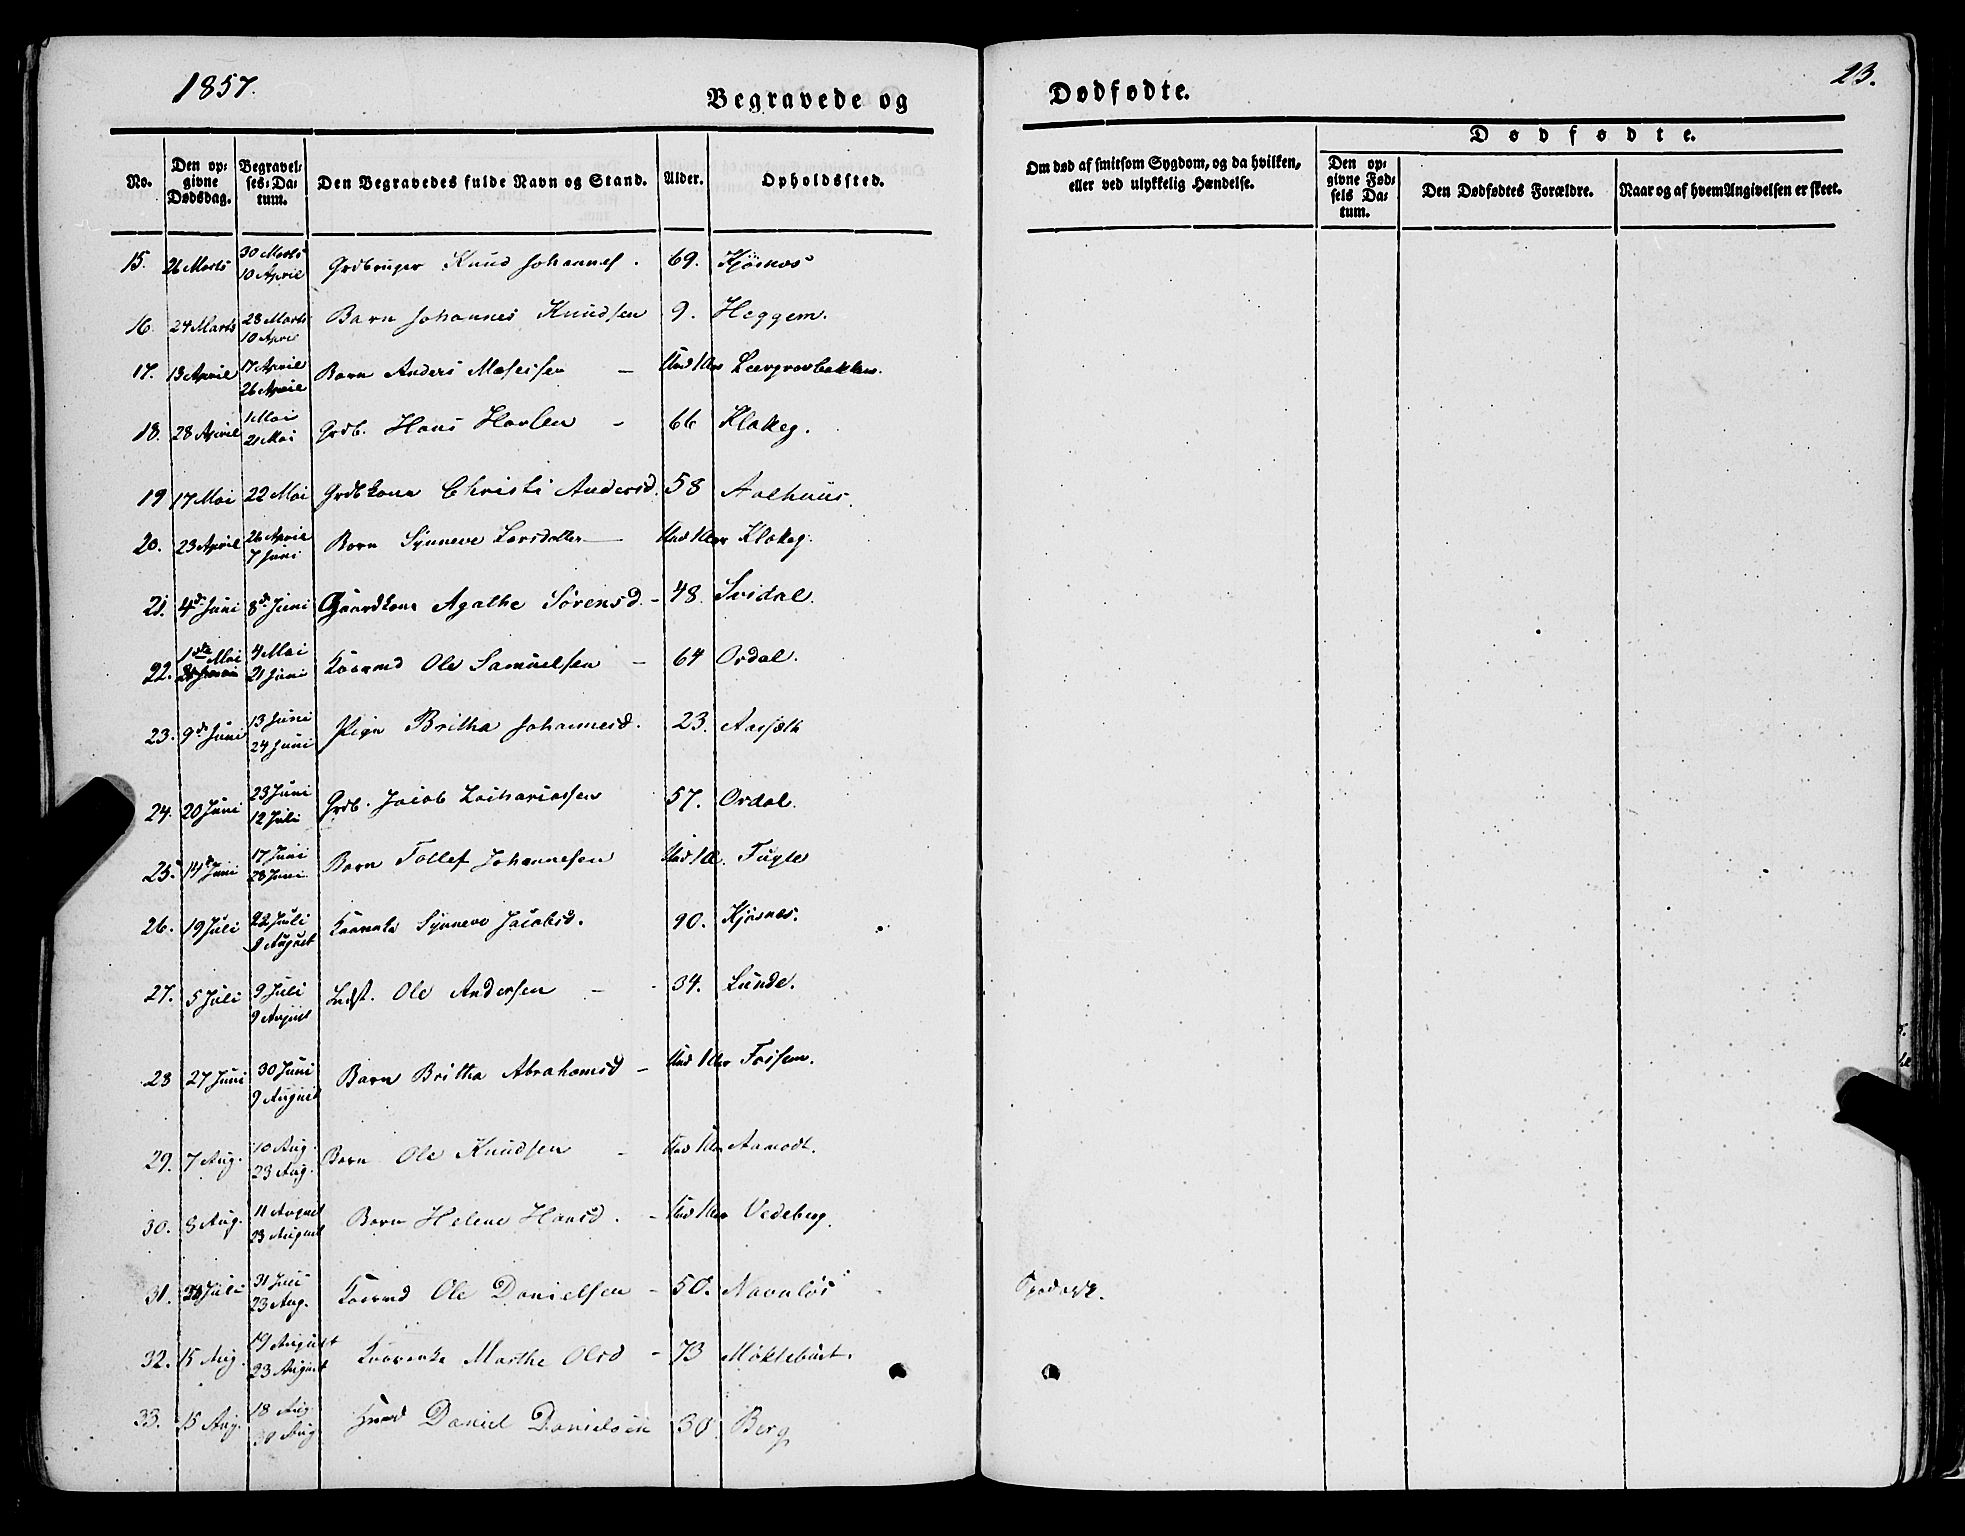 1857.
Begravede og
Dødfødte.
23.
No.
Den opgivne Dødsdag.
Begravelses-Datum.
Den Begravedes fulde Navn og Stand.
Alder.
Opholdssted.
Om død af smitsom Sygdom, og da hvilken, eller ved ulykkelig Hændelse.
Dødfødte.
Den opgivne Fødsels Datum.
Den Dødfødtes Forældre.
Naar og af hvem Angivelsen er skeet.
15. 26 Marts 30 Marts 10 April Grdbruger Knud Johannes. 69. Kjøsnes
16. 24 Marts 28 Marts 10 April Barn Johannes Knudsen 9. Heggem.
17. 13 April 17 April 26 April Barn Anders Mosessen - Und 1 Aar
18. 28 April 1 Mai 21 Mai Grdb. Hans - 66 Klakeg.
19 17 Mai 22 Mai Grdbkone Christi Andersd. 58 Aalhuus.
20. 23 April 26 April 7 Juni Barn Synneve Larsdatter Und 1 Aar Klakeg.
21. 4de Juni 8de Juni Gaardkone Agathe Sørensd. - 48. Svidal.
22. 1ste Mai 4 Mai 21 Juni Kaarmd Ole Samuelsen - 64 Ordal.
23. 9de Juni 13 Juni 24 Juni Pige Britha Johannesd. 23. Aarsæth
24. 20 Juni 23 Juni 12 Juli Grdb. Jacob Zachariassen 57. Ordal.
25. 14de Juni 17 Juni 28 Juni Barn Tollef Johannesen Und 1 A. Fugle
26. 19 Juli 22 Juli 9 August Synneve Jacobsd. 90. Kjøsnes.
27. 5 Juli 9 Juli 9 August Indst. Ole Andersen - 34. Lunde.
28 27 Juni 30 Juni 9 August Barn Britha Abrahamsd - Und 1 Aar Fossem.
29. 7 Aug. 10 Aug. 23 Aug. Barn Ole Knudsen - Und 1 Aar Aamodt.
30. 8 Aug. 11 August 23 August Barn Helene Hansd. - Und 1 Aar Vedeberg.
31. Juli 31 Juli 23 Aug. Kaarmd Ole Danielsen - 50. Navnløs
32. 15 Aug. 19 August 23 August Marthe Olsd - 73 Møklebust.
33. 15 Aug. 18 Aug. 30 Aug Daniel Danielsen 30 Berg